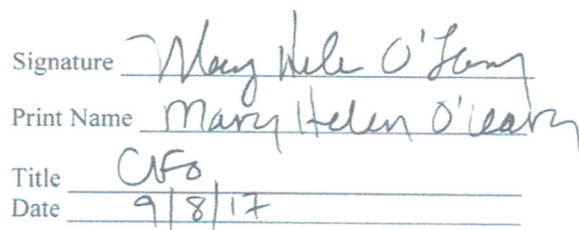 Signature Mary Helen O'Leary
Print Name Mary Helen O'Leary
Title CFO
Date 9/8/17